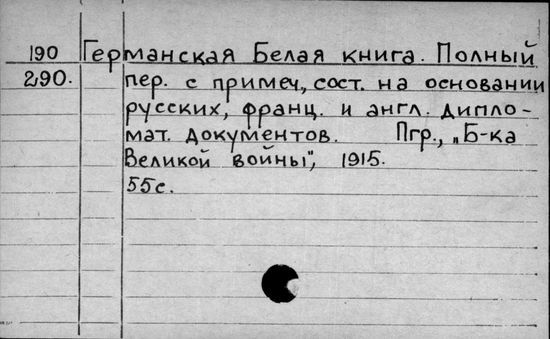 190 Германская Белая книга. Полный
290. пер. с примеч., сост. на основании
русских, франц. и англ. дипло-
мат. документов. Пгр., „Б-ка
Великой войны", 1915.
55с.